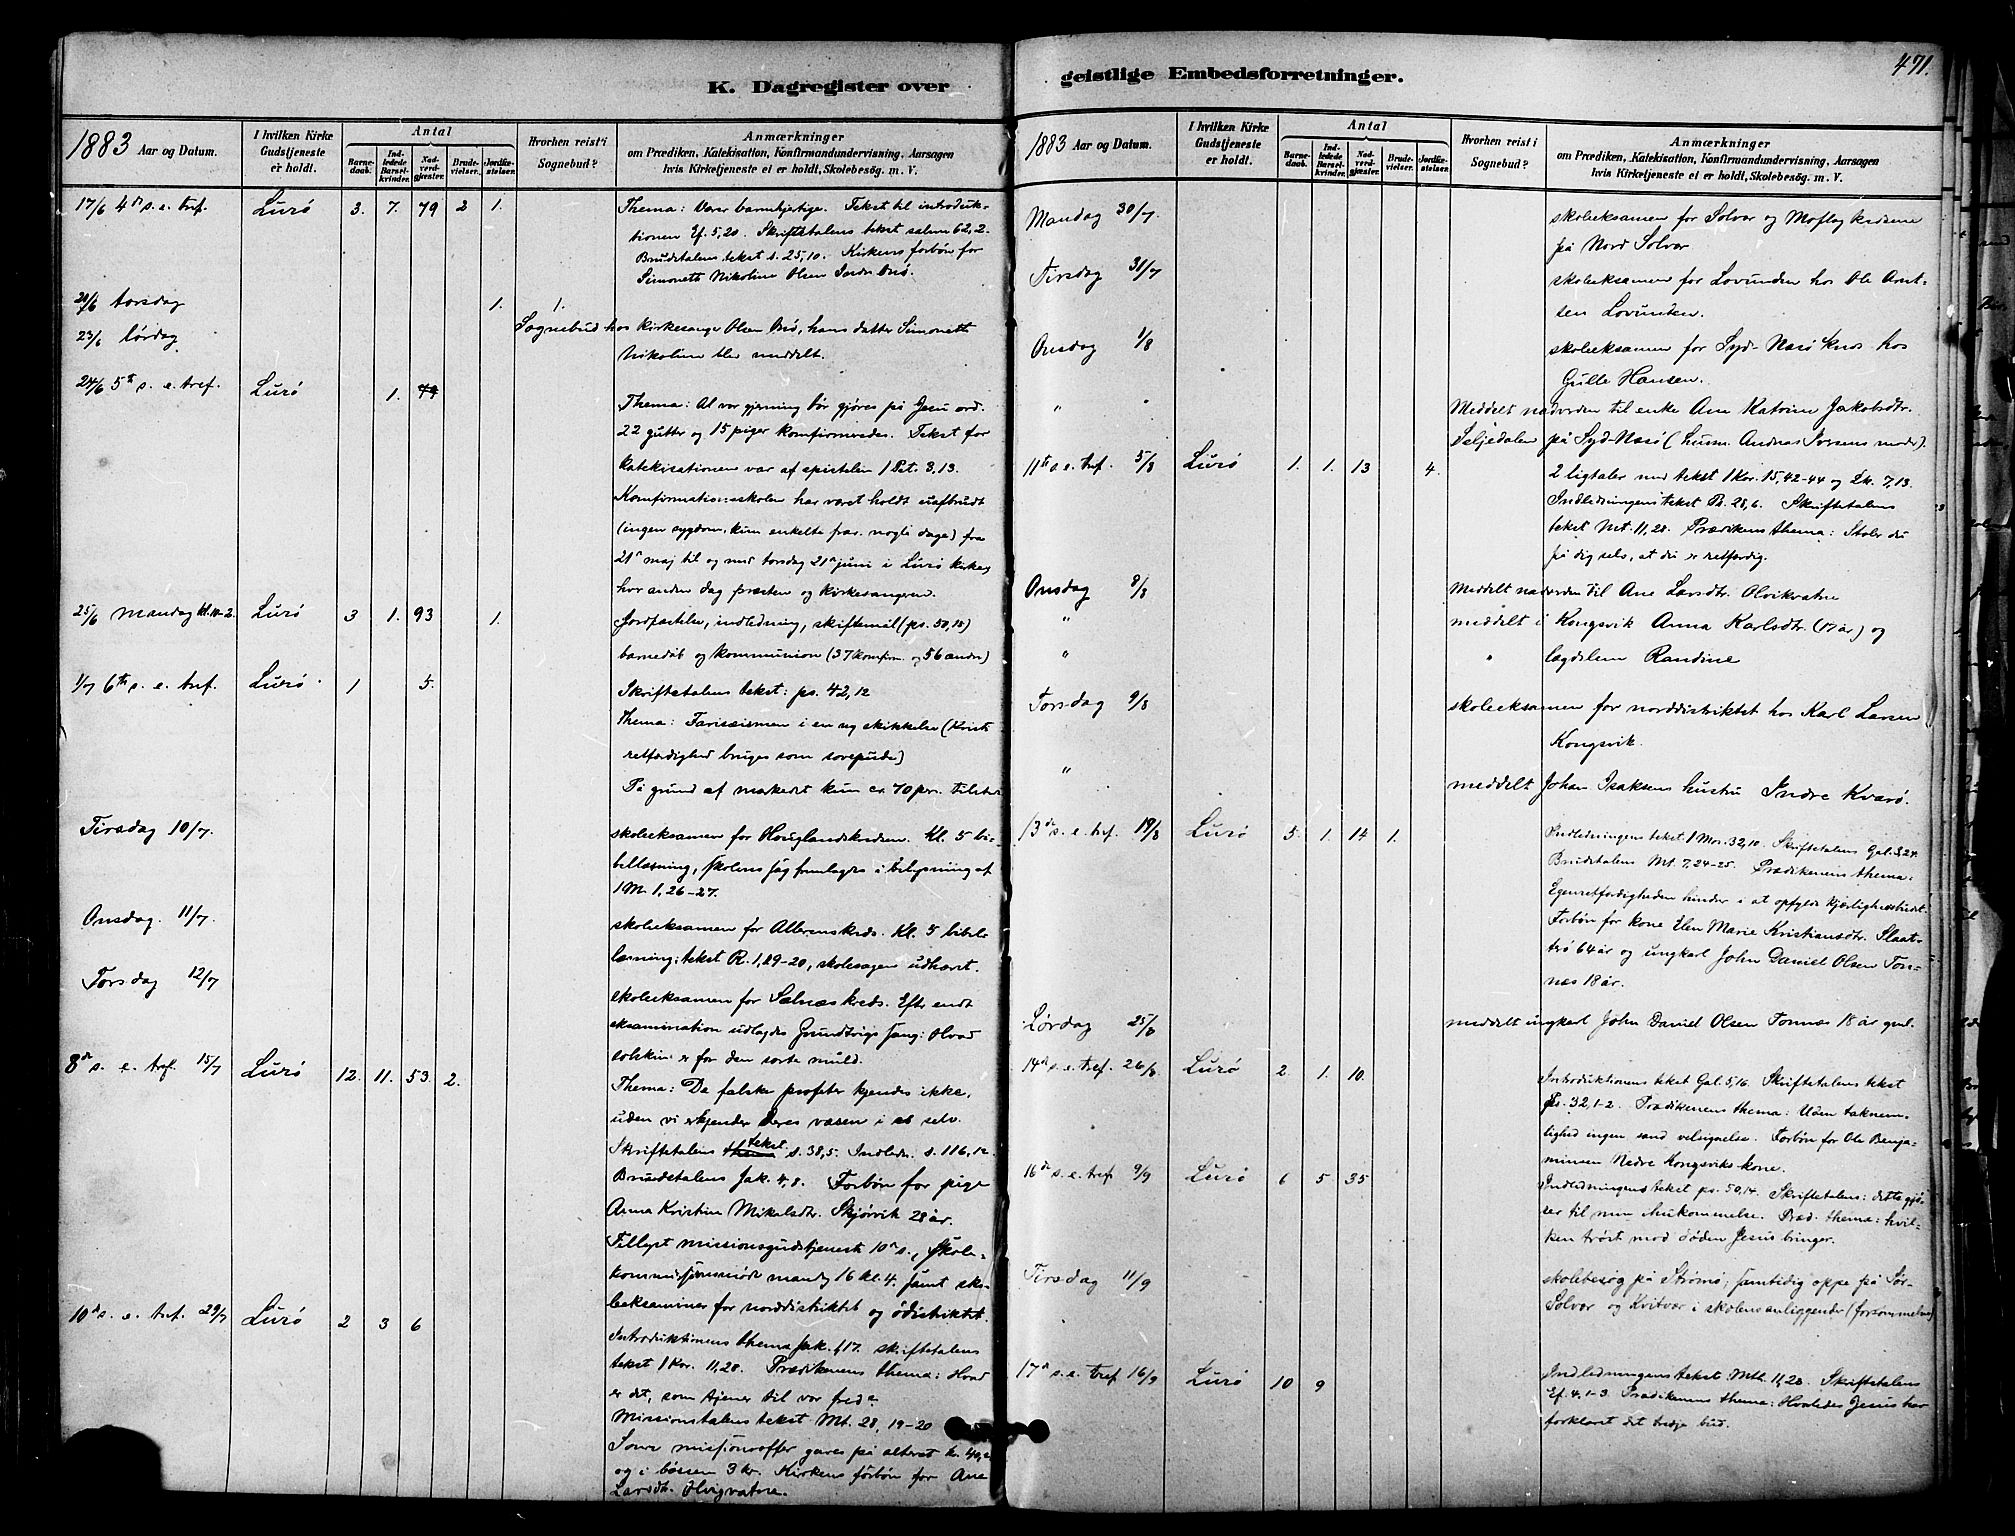 K. Dagregister over
1883 Aar og Datum.
I hvilken Kirke Gudstjeneste er holdt.
Antal
Barnedaab.
Indledede Barselkvinder.
Nadverdgjæster.
Brudevielser.
Jordfæstelser.
Hvorhen reist i Sognebud?
Anmærkninger
om Prædiken, Katekisation, Konfirmandundervisning, Aarsagen
hvis Kirketjeneste ei er holdt, Skolebesøg. m. V.
17/6 4de s. e. tref. Lurö 3. 7. 79 2 1. Thema: Værer barmhjertige. Tekst til introduk-
tionen Ef. 5,20. Skriftetalens tekst salm 62,2.
Brudetalens tekst s. 25,10. Kirkens forbön for
Simonette Nikoline Olsen Indre Onö.
21/6 torsdag 1. 1.
23/6 lördag Sognebud hos kirkesanger Olsen Onö, hans datter Simonette
Nikoline blev meddelt.
24/6 5te s. e. tref. Lurö 1. Thema: Al vor gjerning bör gjöres på Jesu ord.
22 gutter og 15 piger konfirmeredes. Tekst for
katekisationen var af epistelen 1 Pet. 3,13.
Konfirmationsskolen har været holdt uafbrudt
(ingen sygdom, kun enkelte frav. nogle dage) fra
21de maj til og med torsdag 21de juni i Lurö kirke,
hver anden dag præsten og kirkesangeren.
25/6 Mandag kl. 10-2. Lurö 3 1. 93 1. Jordfæstelse, indledning, skriftemål (ps. 50,15)
barnedåb og kommunion (37 konfirm. og 56 andre)
1/7 6te s. e. tref. Lurö 1 5. Skriftetalens tekst: ps. 42,12
Thema: Farisæismen i en ny skikkelse (Krists
retfærdighed bruges som sovepude)
På grund af markedet kun ca. 70 pers. tilstede
Tirsdag 10/7. skoleeksamen for Houglandskredsen. Kl. 5 bi-
bellæsning, skolens sag fremlagdes i belysning af
1 M. 1, 26-27.
Onsdag. 11/7. skoleeksamen for Alderenskreds. Kl. 5 bibel-
læsning; tekst R. 1,19-20, skolesagen udhævet.
Torsdag 12/7 skoleeksamen for Selnæs kreds. Efter endt
eksamination udlagdes Grundtvigs sang: Hvad
solskin er for den sorte muld.
8de s. e. tref. 15/7 Lurö 12. 11. 53. 2. Thema: De falske profeter kjendes ikke,
uden vi erkjender deres væsen i os selv.
Skriftetalens tekst s. 38,5. Indledn. s. 116,12.
Brudetalens Jak. 4,8. Forbön for pige
Anna Kristine Mikalsdtr. Skjörvik 28 år.
Tillyst missionsgudstjeneste 10de s., skole-
kommissionsmöde mandag 16 kl. 4. samt sko-
leeksaminer for norddistriktet og ödistriktet.
10de s. e. tref. 29/7 Lurö 2 3 6 Introduktionens thema Jak. 1,17. skriftetalens
tekst 1 Kor. 11,28. Prædikenens thema: Hvad
er det, som tjener til vor fred?
Missionstalens tekst Mt. 28, 19-20
Som missionsoffer gaves på alteret kr. 40,
og i bössen 3 kr. Kirkens förbön for Ane
Larsdtr. Olvigvatne.
geistlige Embedsforretninger.
471.
1883 Aar og Datum.
I hvilken Kirke Gudstjeneste er holdt.
Antal
Barnedaab.
Indledede Barselkvinder.
Nadverdgjæster.
Brudevielser.
Jordfæstelser.
Hvorhen reist i Sognebud?
Anmærkninger
om Prædiken, Katekisation, Konfirmandundervisning, Aarsagen
hvis Kirketjeneste ei er holdt, Skolebesøg. m. V.
Mandag 30/7. skoleeksamen for Solvær og Moflag kredsene
på Nord Solvær
Tirsdag 31/7 skoleeksamen for Lovunden hos Ole Arnt-
sen Lovunden.
Onsdag 1/8 skoleeksamen for Syd-Nesö kreds hos
Gulle Hansen.
" Meddelt nadverden til enke Ane Katrine Jakobsdtr.
Seljedalen på Syd-Nesö (husm. Andreas Iversens moder).
11te s. e. tref. 5/8 Lurö 1. 1. 13 4. 2 ligtaler med tekst 1 Kor. 15,42-44 og Lk. 7,13.
Indledningens tekst Ps. 28,6. Skriftetalens
tekst Mt. 11,28. Prædikens thema: Stoler du
på dig selv, at du er retfærdig.
Onsdag 8/8 Meddelt nadverden til Ane Larsdtr. Olvikvatne
" meddelt i Kongsvik Anna Karlsdtr. (17 år) og
" " lægdslem Randine
Torsdag 9/8 skoleeksamen for norddistriktet hos Karl Larsen
Kongsvik.
" meddelt Johan Isaksens hustru Indre Kvarö.
13de s. e. tref. 19/8 Lurö 5. 1. 14 1. Indledningens tekst: 1 Mos. 32,10. Skriftetalens Gal. 3,24.
Brudetalens Mt. 7,24-25. Prædikenens thema:
Egenretfærdigheden hindrer i at opfylde kjærlighedsbudet.
Forbön for kone Elen Marie Kristiansdtr. Slaat-
trö 64 år og ungkarl John Daniel Olsen Ton-
nes 18 år.
Lördag 25/8 meddelt ungkarl John Daniel Olsen Tonnes 18 år gml.
14de s. e. tref. 26/8. Lurö 2. 1. 10. Introduktionens tekst Gal. 5,16. Skriftetalens tekst
Ps. 32,1-2. Prædikenens thema: Uden taknem-
lighed ingen sand velsignelse. Forbön for Ole Benja-
minsen Nedre Kongsviks kone.
16de s. e. tref 9/9 Lurö 6 5 35 Indledningens tekst ps. 50,14. Skriftetalens: dette gjö-
rer til min ihukommelse. Præd. thema: hvil-
ken tröst mod döden Jesus bringer.
Tirsdag 11/9 skolebesög på Strömö, samtidig oppe på Sör-
Solvær og Kvitvær i skolens anliggender (forsömmelse)
17de s. e. tref 16/9 Lurö 10 9 Indledningens tekst Mth. 11,28. Skriftetalens
Ef. 4, 1-3. Prædikenens thema: Hvoledes Jesus har
forklaret det tredje bud.